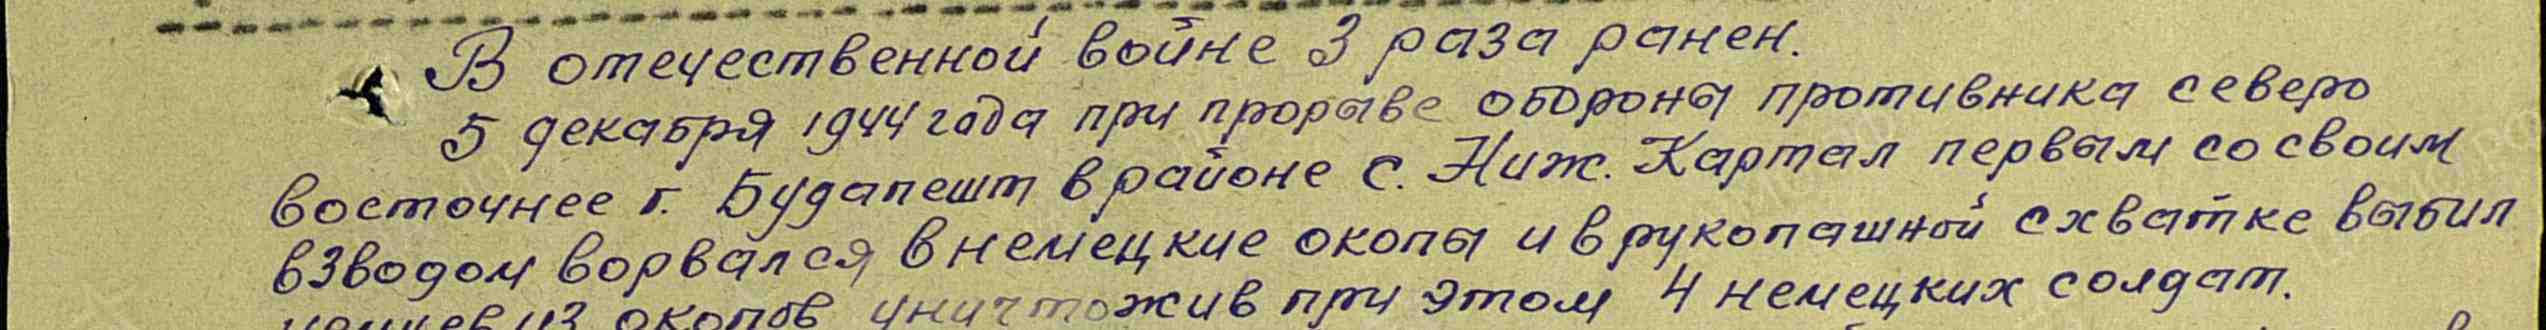 В отечественной войне 3 раза ранен.
5 декабря 1944 года при прорыве обороны противника северо
восточнее г. Будапешт в районе с. Ниж. Картал первым со своим
взводом ворвался в немецкие окопы и в рукопашной схватке выбил
немцев из окопов уничтожив при этом 4 немецких солдат.